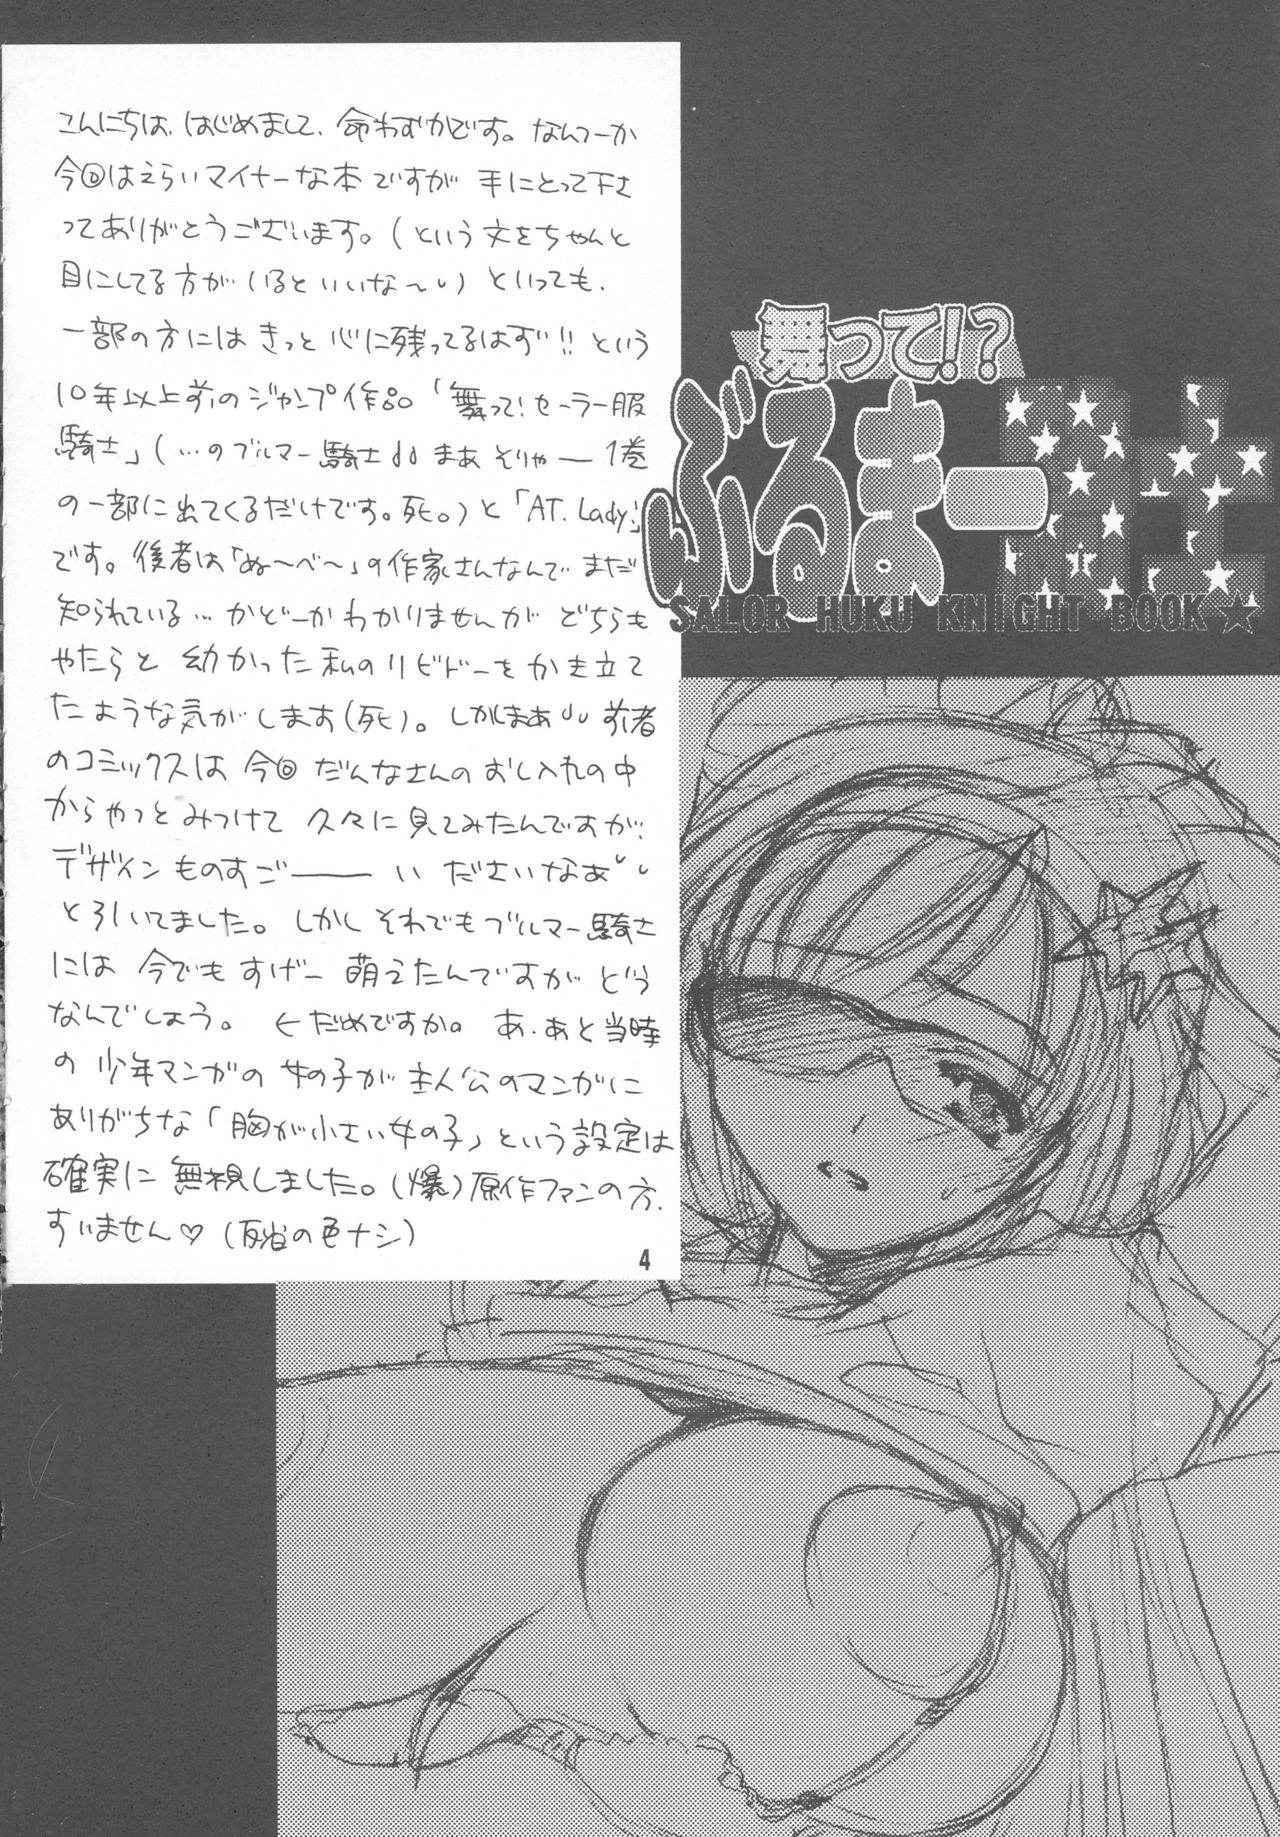 こんにちは、はじめまして、命わずかです。なんつーか
今回はえらいマイナーな本ですが 手にとって下さ
ってありがとうございます。(という文をちゃんと
目にしてる方がいるといいな〜) といっても、
一部の方には きっと 心に残ってるはず!! という
10年以上前のジャンプ作品「舞って!セーラー服
騎士」(…のブルマー騎士 まあ そりゃー 1巻
の一部に出てくるだけです。死。) と「AT. Lady!」
です。後者は「ぬ〜べ〜」の作家さんなんで まだ
知られている… かどーかわかりませんが どちらも
やたらと 幼かった 私のリビドーを かき立て
たような気がします(死)。しかしまあ 前者
のコミックスは 今回 だんなさんの おし入れの中
からやっと みつけて 久々に見てみたんですが、
デザイン ものすごーーい ださいなあ
と引いてました。しかし それでも ブルマー騎士
には 今でも すげー 萌えたんですが どう
なんでしょう。 ←だめですか。 あ、あと 当時
の 少年マンガの 女の子が 主人公のマンガに
ありがちな「胸が小さい女の子」という設定は
確実に 無視しました。(爆) 原作ファンの方、
すいません♡ (反省の色ナシ)
4
舞って!?
ぶるまー騎士
SALOR HUKU KNIGHT BOOK☆